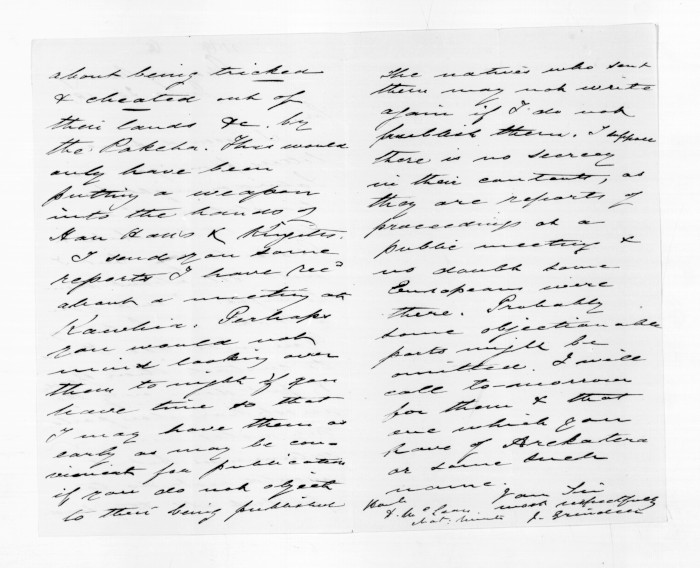 about being tricked
& cheated out of
their lands &c. by
the Pakeha. This would
only have been
putting a weapon
into the hands of
Hau Haus & Kingites.
I send you some
reports I have recd
about a meeting at
Kawhia. Perhaps
you would not
mind looking over
them to night if you
have time so that
I may have them as
early as may be con-
venient for publication
if you do not object
to their being published
the natives who sent
them may not write
again if I do not
publish them. I suppose
there is no secrecy
in their contents, as
they are reports of
proceedings at a
public meeting &
no doubt some
Europeans were
there. Probably
some objectionable
parts might be
omitted. I will
call to-morrow
for them & that
one which you
have of
or some such
name.
Your Sir
most respectfully
J. Grindell
Honl
D. McLean
Nat. Minister